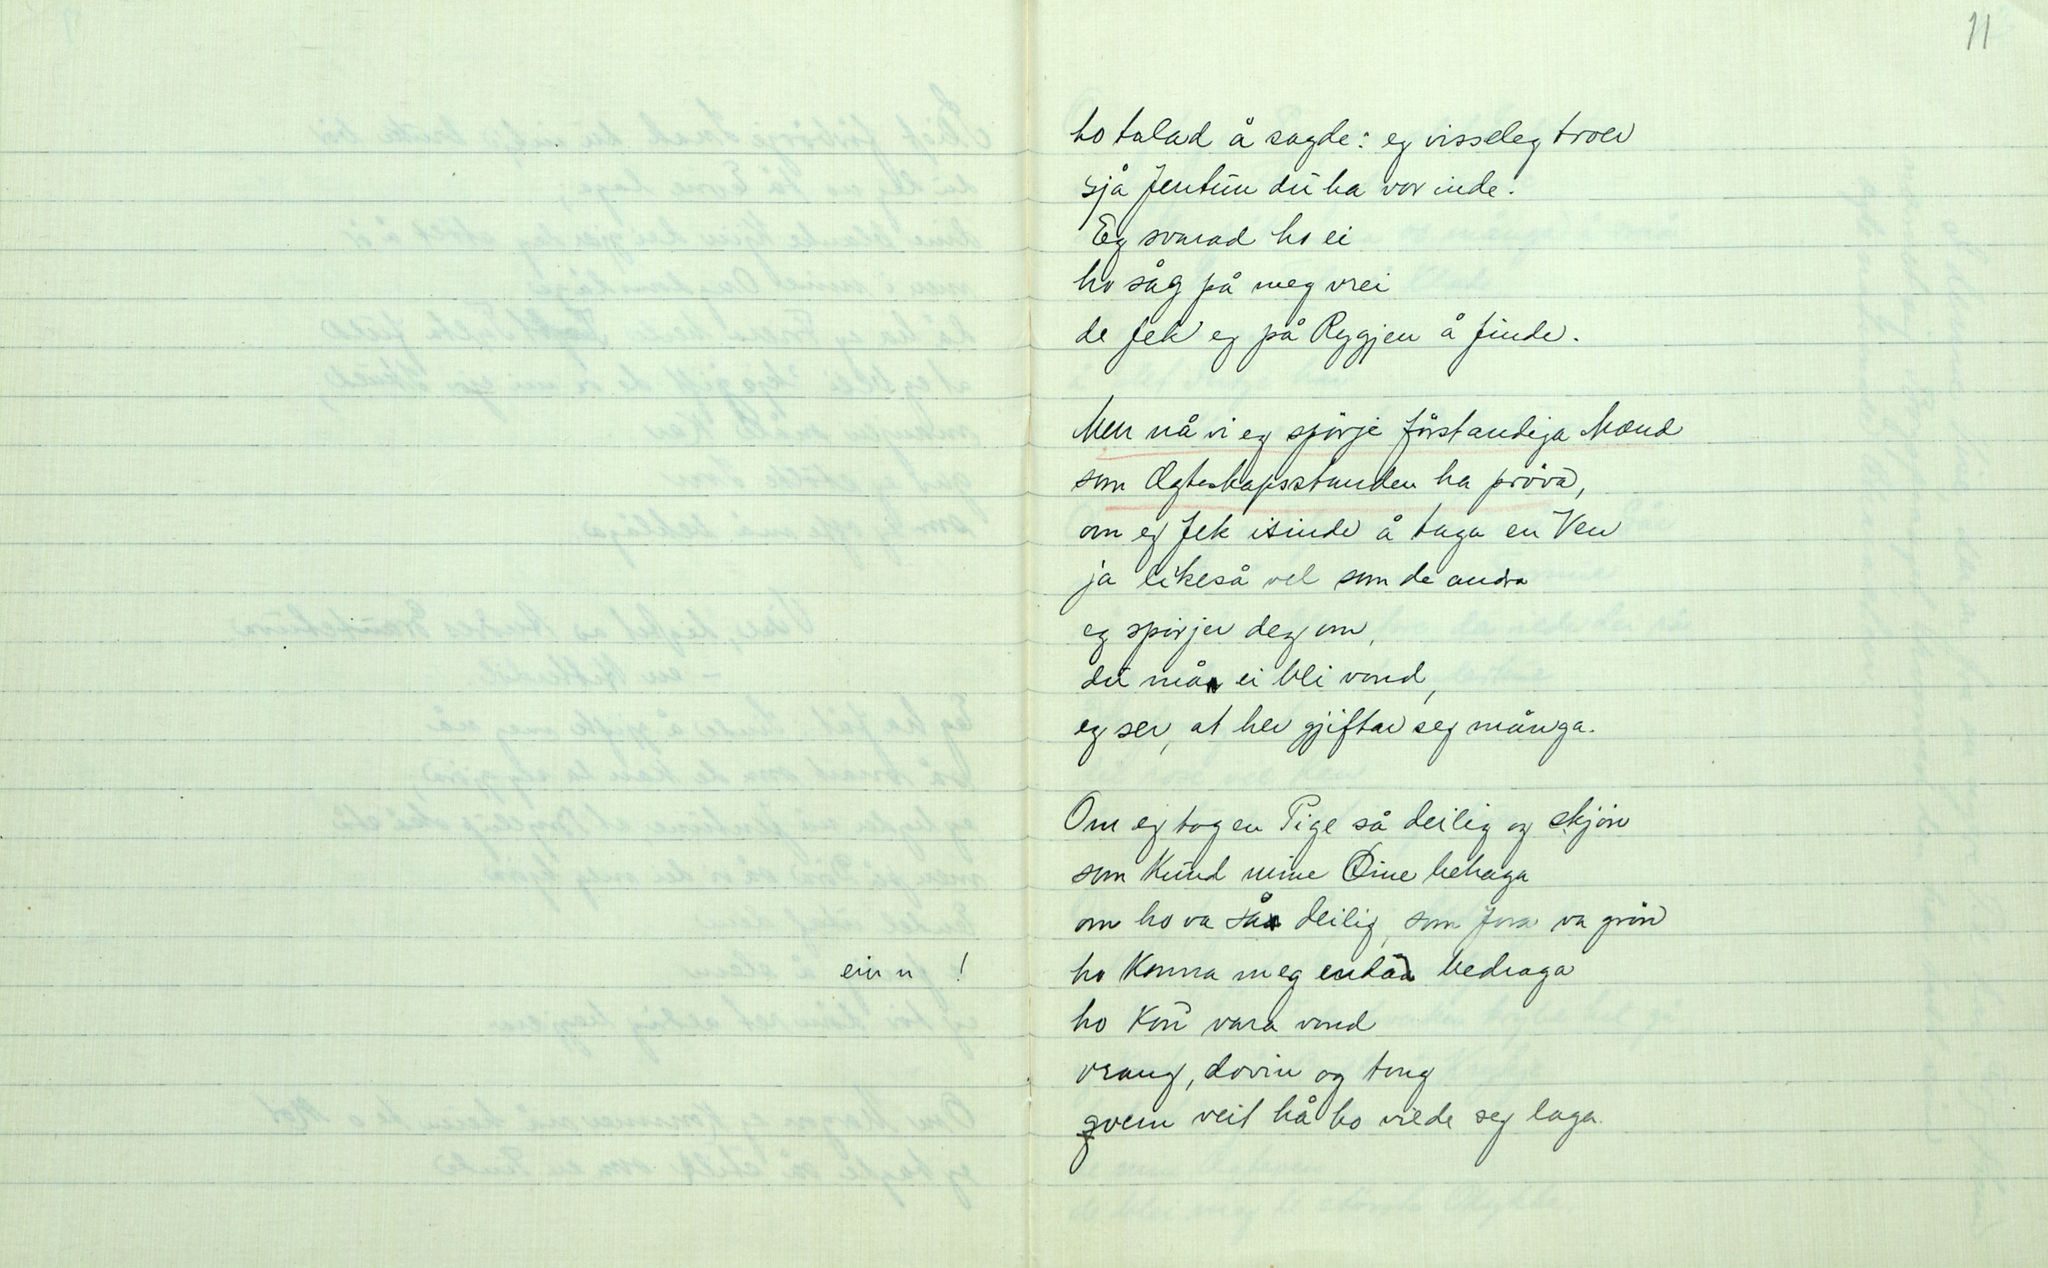 11
ho talad å sagde: eg visseleg troer
sjå Jentun du ha vor inde.
Eg svarad ho ei
ho såg på meg vrei
de fek eg på Ryggjen å finde.
Men nå vi eg spörje förstandiga Mænd
som Ægteskapsstanden ha pröva,
om eg fek isinde å taga en Ven
ja likeså vel som de andra
eg spörjer deg om,
du må ei bli vond,
eg ser, at her gjiftar seg många.
Om eg tog en Pige så deilig og skjön
som Kund mine Öine behaga
om ho va så deilig, som Jora va grön
einn !
ho Konna meg endåa bedraga
ho Kon vara vond
vrang, dovin og tong
qvem veit hå ho vilde seg laga.